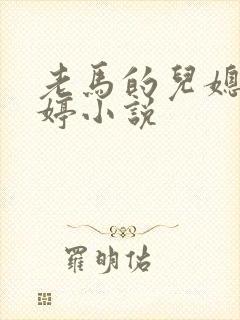 老馬的兒媳
婷小説
羅明佑